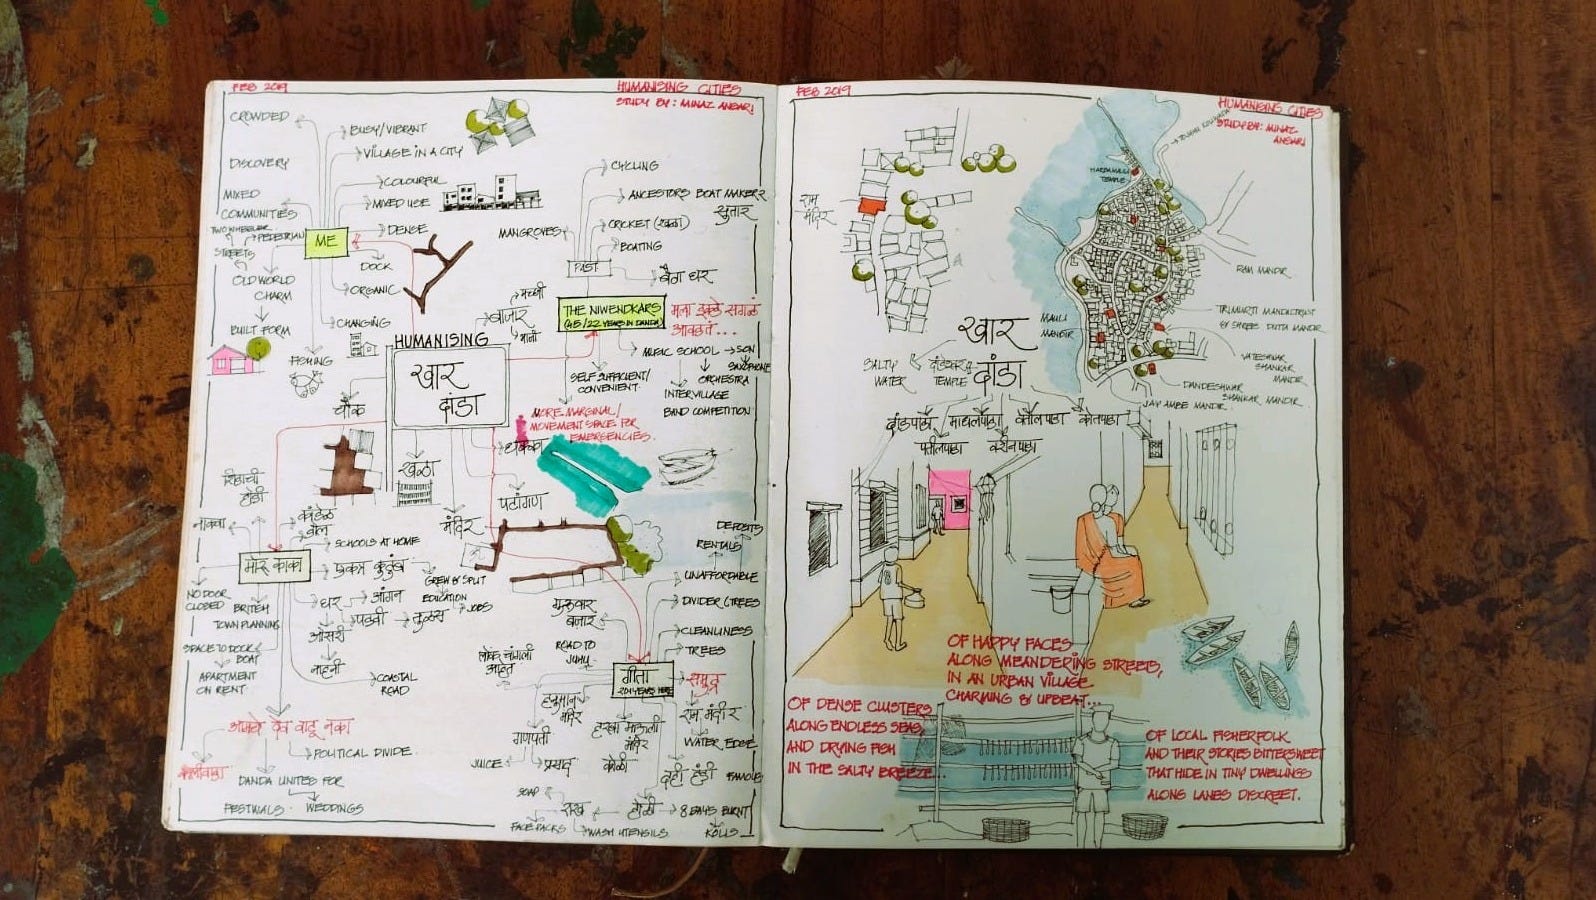 FEB 2019
HUMANISING CITIES
STUDY BY: MINAZ ANSARI
CROWDED
BUSY/VIBRANT
VILLAGE IN A CITY
DISCOVERY
COLOURFUL
MIXED USE
MIXED
COMMUNITIES
TWO WHEELER
PEDESTRIAN
STREETS
ME
DENSE
DOCK
OLD WORLD
CHARM
ORGANIC
BUILT FORM
CHANGING
FISHING
CYCLING
ANCESTORS BOAT MAKERS
सुतार
MANGROVES
CRICKET (खळा)
BOATING
PAST
बैठा घर
मच्छी
बाजार
THE NIWENDKARS
(45/22 YEARS IN DANDA)
मला इकडे सगळं
आवडतं...
MUSIC SCHOOL
SON
SAXOPHONE
ORCHESTRA
INTERVILLAGE
BAND COMPETITION
SELF SUFFICIENT/
CONVENIENT
MORE MARGINAL/
MOVEMENT SPACE FOR
EMERGENCIES.
HUMANISING
खार
दांडा
चौक
खळा
मंदिर
पटांगण
SCHOOLS AT HOME
एकत्र कुटुंब
GREW & SPLIT
EDUCATION
JOBS
NO DOOR
CLOSED
BRITISH
TOWN PLANNING
घर
आंगन
पडवी
ओसरी
SPACE TO DOCK
BOAT
APARTMENT
ON RENT
COASTAL
ROAD
POLITICAL DIVIDE
DANDA UNITES FOR
FESTIVALS
WEDDINGS
DEPOSITS
RENTALS
UNAFFORDABLE
DIVIDER (TREES)
CLEANLINESS
TREES
गुरुवार
बजार
ROAD TO
JUHU
लोक चांगली
आहेत
गीता
20+ YEARS HERE
समुद्र
हनुमान
मंदिर
राम मंदीर
WATER EDGE
गणपती
JUICE
प्रसाद
कोळी
दही हंडी
FAMOUS
SOAP
राख
होळी
8 DAYS BURNT
FACE PACKS
WASH UTENSILS
KOLIS
FEB 2019
HUMANISING CITIES
STUDY BY: MINAZ
ANSARI
HARBAMAULI
TEMPLE
राम
मंदिर
RAM MANDIR
खार
दांडा
MAULI
MANDIR
SALTY
WATER
TEMPLE
TRIMURTI MANDIR TRUST
& SHREE DUTTA MANDIR
VATESHWAR
SHANKAR
MANDIR
DANDESHWAR
SHANKAR MANDIR
JAY AMBE MANDIR
दांडपाडा
पाटीलपाडा
OF HAPPY FACES
ALONG MEANDERING STREETS,
IN AN URBAN VILLAGE
CHARMING & UPBEAT...
OF DENSE CLUSTERS
ALONG ENDLESS SEAS,
AND DRYING FISH
IN THE SALTY BREEZE...
OF LOCAL FISHERFOLK
AND THEIR STORIES BITTERSWEET
THAT HIDE IN TINY DWELLINGS
ALONG LANES DISCREET.